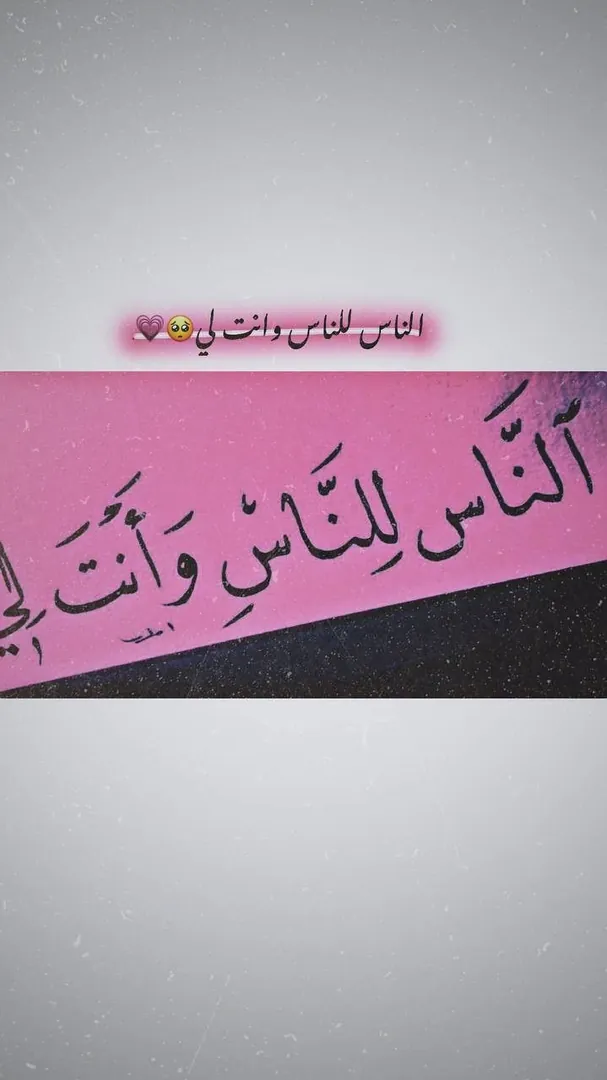 الناس للناس وانت لي🥺💗
اَلنَّاس لِلنَّاسِ وَأَنْتَ لِي